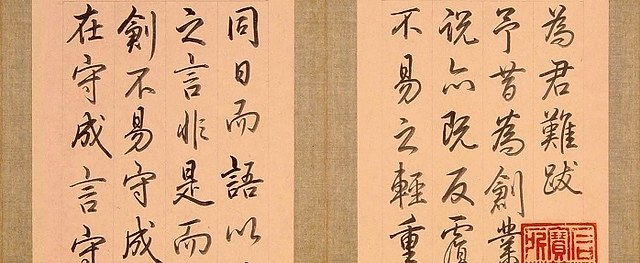 為君難跋
予昔為創業
說亦既反覆
不易之輕重
同日而語以
之言非是而
創不易守成
在守成言守